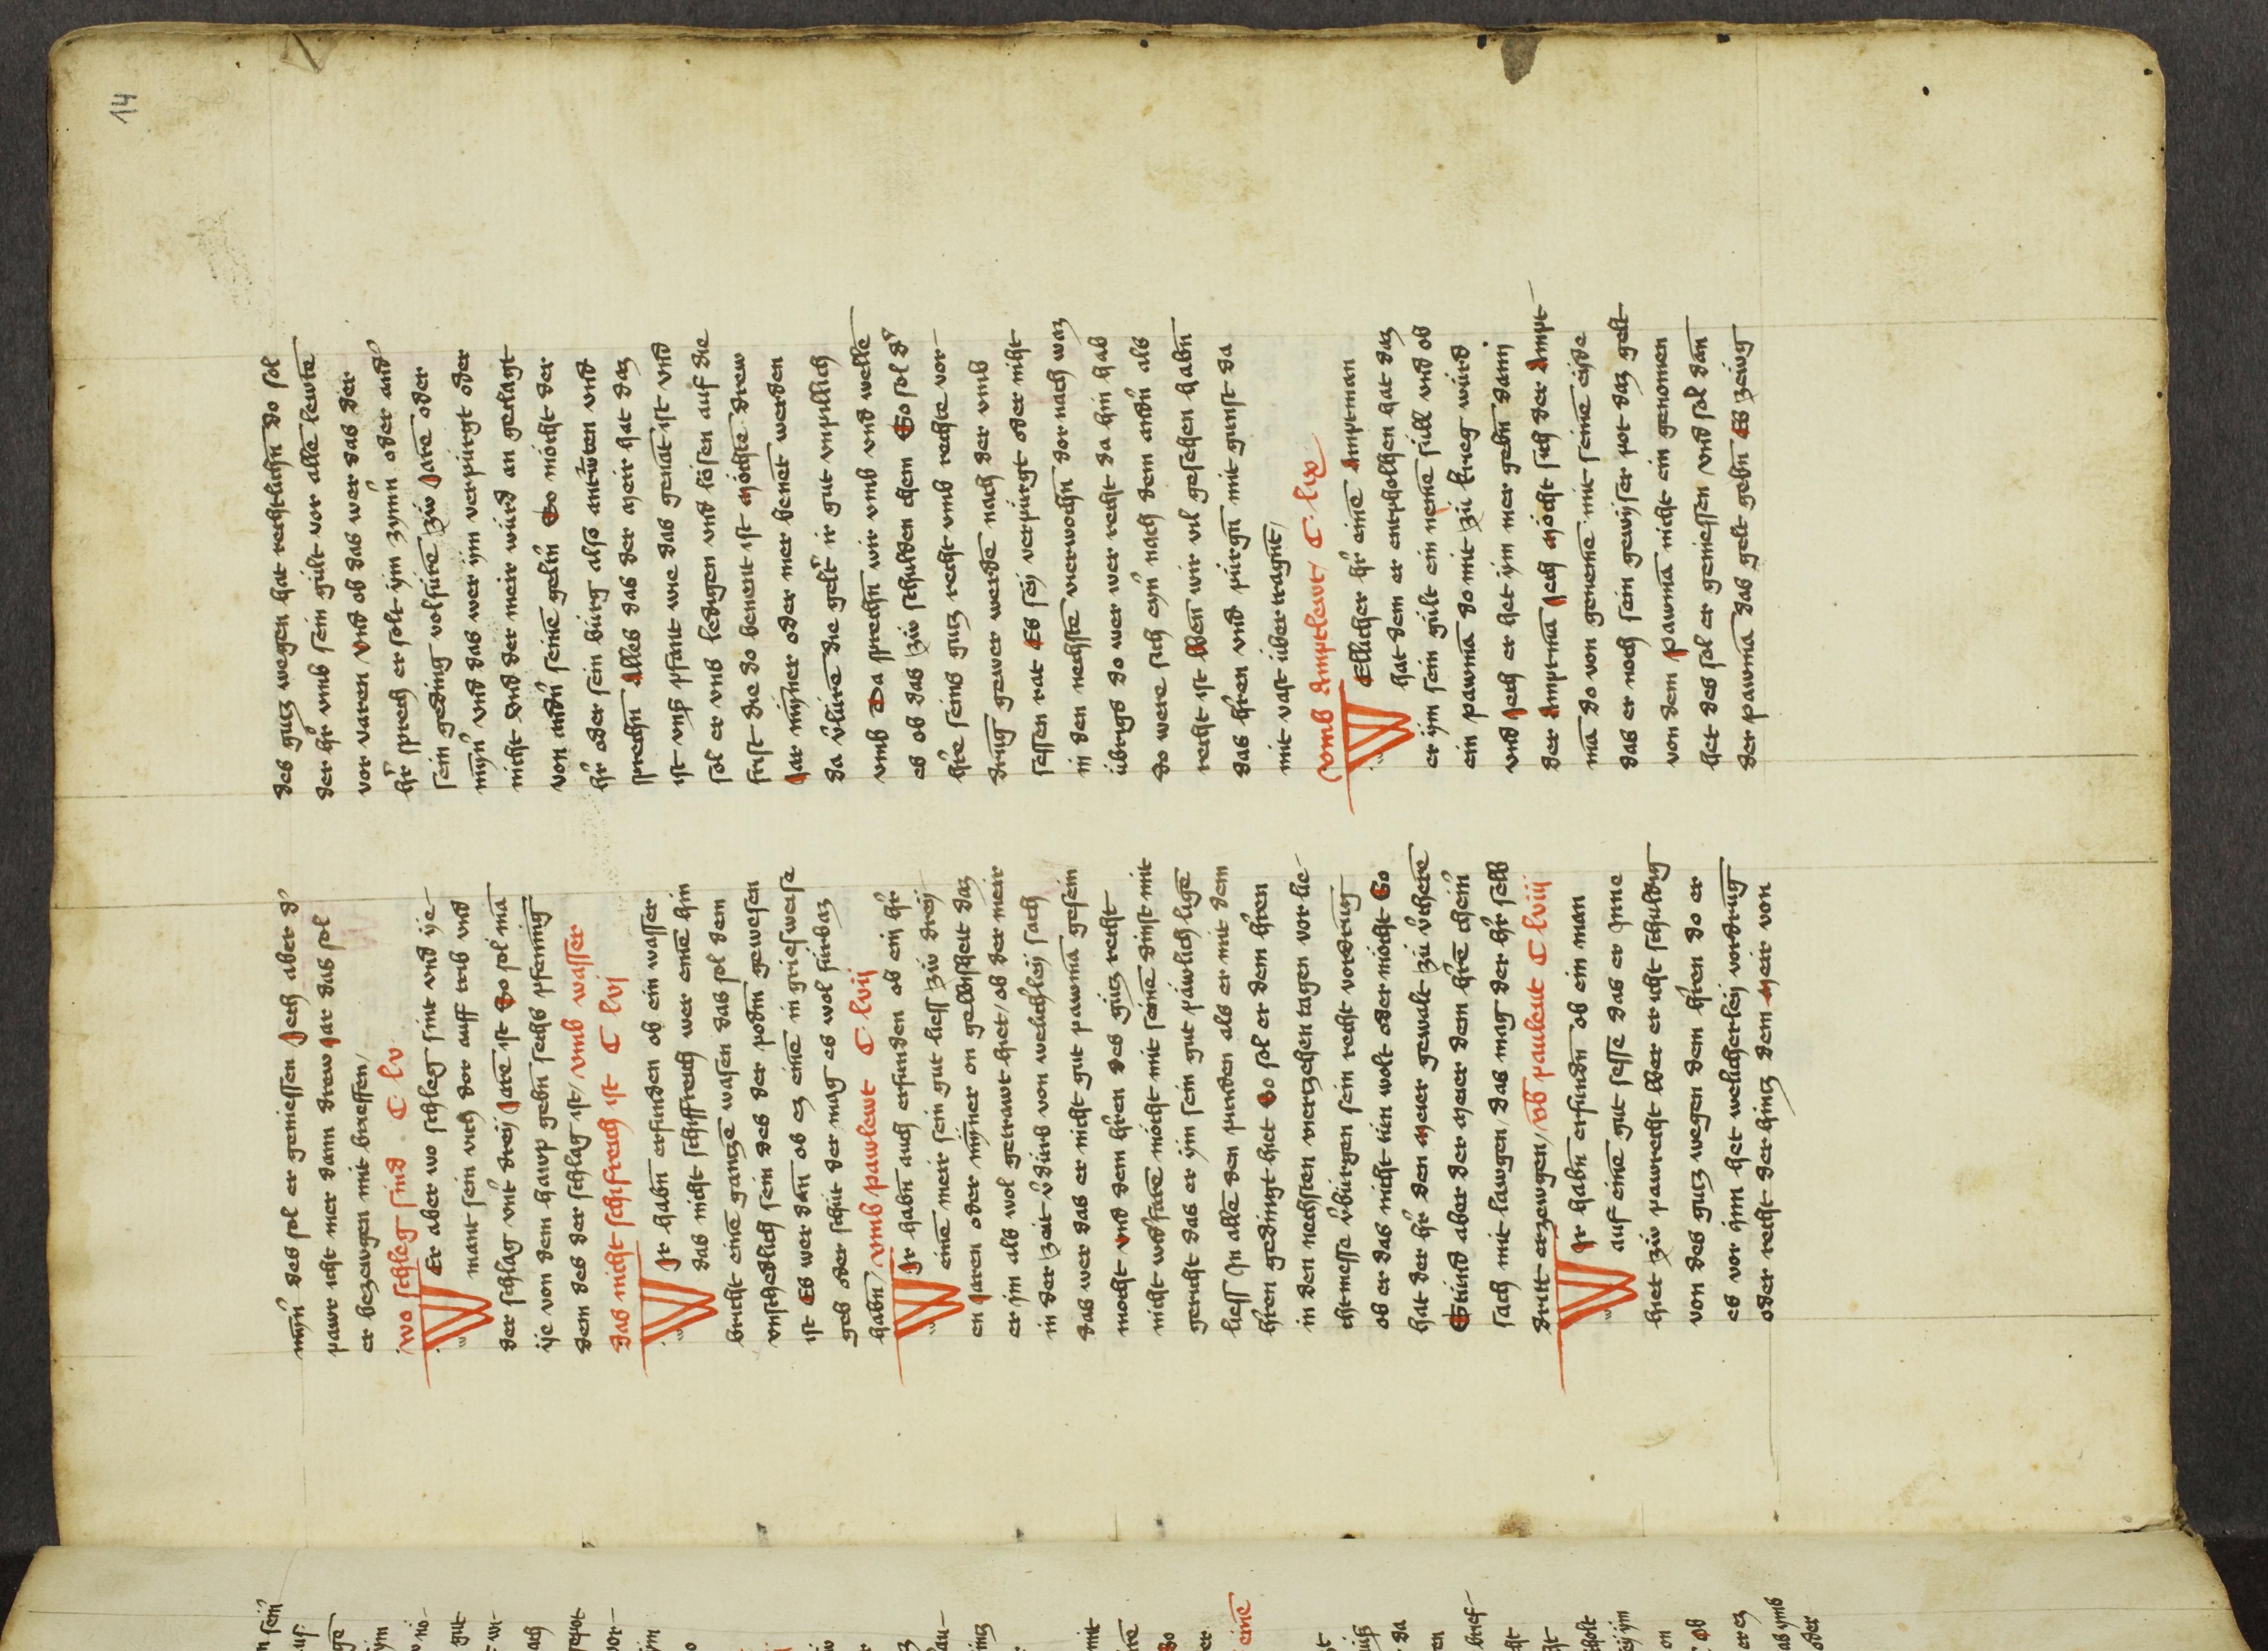 14
mÿn̄ des sol er geniessen Jech aber d'
pawr icht mer dann drew Jar das sol
er bezewgen mit briеffen
wo schleg sind C lv
WEr aber wo schleg sint vnd ye-
mant sein vich dor auff treib vnd
der schlag vnt dreÿ Jare ist So sol mā
ÿe von dem hawp gebn̄ sechs pfennīg
dem des der schlag ist/ vmb wasser
das nicht schifreich ist C lvj
WJr habn̄ erfunden ob ein wasser
das nicht schiffreich wer eine hin
bricht eine gantze wasen das sol dem
vnschedlich sein des der podm̄ gewesen
ist Es wer dan̄ ob ez eine in griesweise
geb oder schüt der mag es wol fürbaz
habn̄/ vmb pawlewt C lvij
WJr habn̄ auch erfunden ob ein h'r
eine meir sein gut liess zw dreÿ
en Jaren oder mÿner on gelbischeit daz
er im als wol getrawt hiet/ ob der meir
in der zeit v'dürb von welich'leÿ sach
das wer das er nicht gut pawmā gesein
mocht vnd dem h'ren des gutz recht
nicht widfare möcht mit seine dinst mit
gericht das er ÿm sein gut päwlich lige
liess Jn alle den punden als er mit dem
h'ren gedingt hiet So sol er dem h'ren
in den nechsten vierzehen tagen vor lie-
chtmesse v'bürgen sein recht vordrung
ob er das nicht tün wolt oder möcht So
hat der h'r den Meier gewalt zü v'chere
Stünd aber der Meier dem h're chein'
sach mit lawgen/ das mag der h'r selb
dritt erzewgen/ vb pauleut C lviij
WJr habn̄ erfundn̄ ob ein man
auf eine gut sesse das er Jnne
hiet zw pawrecht Aber er icht schuldig
von des gutz wegen dem h'ren do er
es vor ÿnn het welicherleÿ vordrung
oder recht der hintz dem Meir von
des gutz wegen hat rechtlichn̄ do sol
der h'r vmb sein gült vor alle lewte
vor varen Vnd ob das wer das der
h'r sprech er solt ÿm zÿnn̄ oder and'
sein geding volfüre zw Jare oder
mÿn̄ vnd das wer ÿm verpürgt oder
nicht Vnd der meir würd an geclagt
von andn̄ seine geltn̄ So möcht der
h'r oder sein bürg also antw̄ten vnd
sprechn̄ Alles das der Meir hat daz
ist vns pfant wie das genāt ist vnd
sol er vns ledigen vnd lösen auf die
frist die do benent ist Möchte drew
Jar mÿner oder mer benēt werden
da v'lüre die gelt' ir gut vnpillich
vmb Da sprechn̄ wir vmb vnd welle
es ob das zw schulden chem So sol d'
h're seins gutz recht vmb rechte vor-
drung gewer werde nach der vmb
sessen rat Es seÿ verpürgt oder nicht
in den nechste vierwochn̄ dor nach waz
übrigs do wer wer recht da hin hab
do were sich eyn' nach dem andn̄ als
recht ist Aben̄ wir vil gesehen habn̄
das h'ren vnd pürgn̄ mit gunst da
mit vast über tragnt/
Vomb Amptlewt/ C lix
WElicher h'r eine Amptman
hat dem er entpholhen hat daz
er ÿm sein gült ein neme süll vnd ob
ein pawmā do mit zü krieg würd
vnd Jech er het ÿm mer gebn̄ dann
der Amptmā Jech Möcht sich der Ampt-
mā do von geneme mit seine eÿde
das er noch sein gewiser pot daz gelt
von dem Pawmā nicht ein genomen
het des sol er geniessen/ vnd sol dan̄
der pawmā das gelt gebn̄ Es zewg